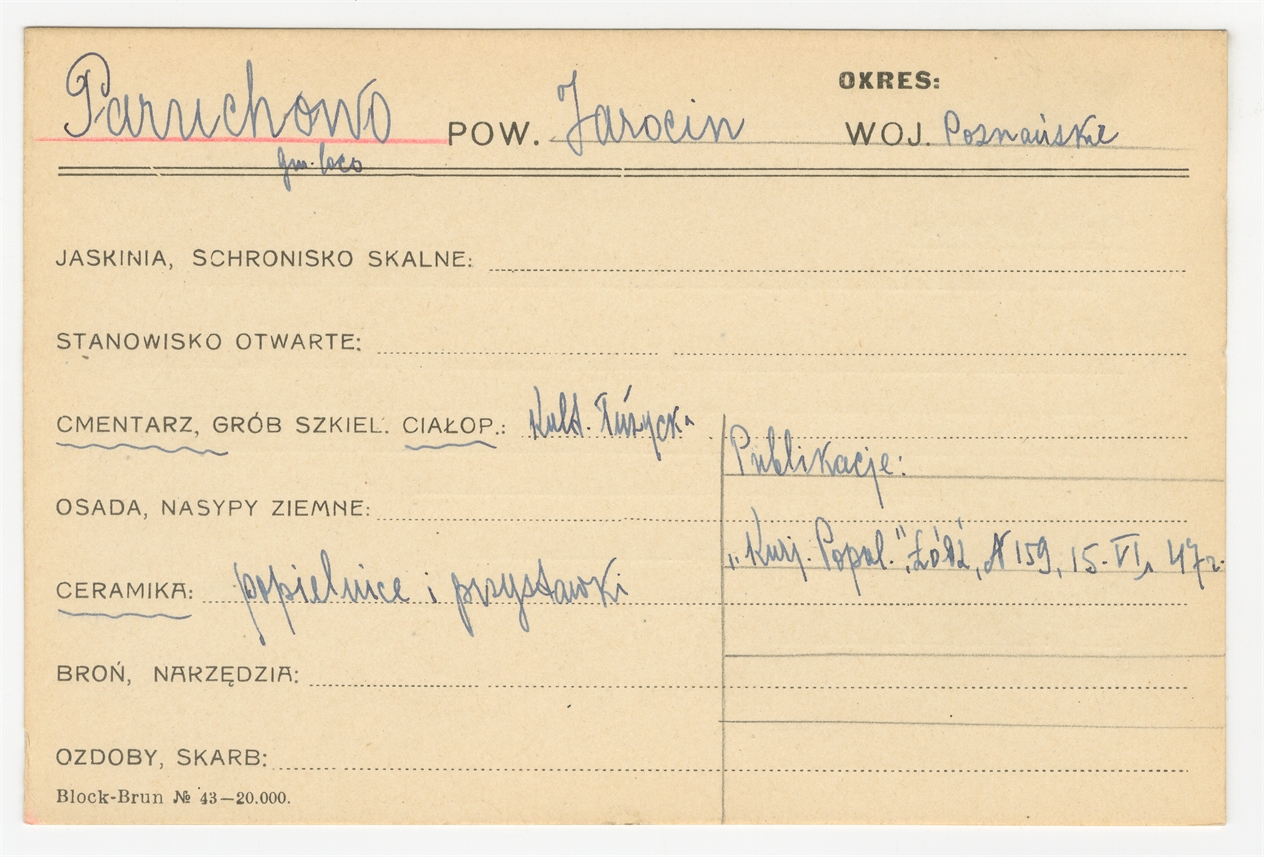 OKRES:
Paruchowo POW. Jarocin WOJ. Poznańskie
gm. loco
JASKINIA, SCHRONISKO SKALNE:
STANOWISKO OTWARTE:
CMENTARZ, GRÓB SZKIEL. CIAŁOP.: Kult. Łużycka
Publikacje:
OSADA, NASYPY ZIEMNE:
„Kurj. Popul.", Łódź, N 159, 15. VI, 47 r.
CERAMIKA: popielnice i przystawki
BROŃ, NARZĘDZIA:
OZDOBY, SKARB:
Block-Brun № 43—20.000.